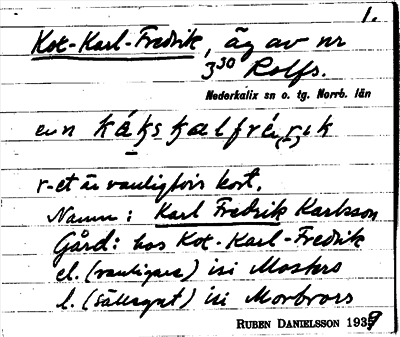 1.
Kot-Karl-Fredrik, äg av nr
3³⁰ Rolfs.
Nederkalix sn o. tg. Norrb. län
r-et är vanligtvis kort.
Namn: Karl Fredrik Karlsson
Gård: hos Kot-Karl-Fredrik
el. (vanligare) isi Mosters
l. (sällsynt) isi Morbrors
RUBEN DANIELSSON 1939